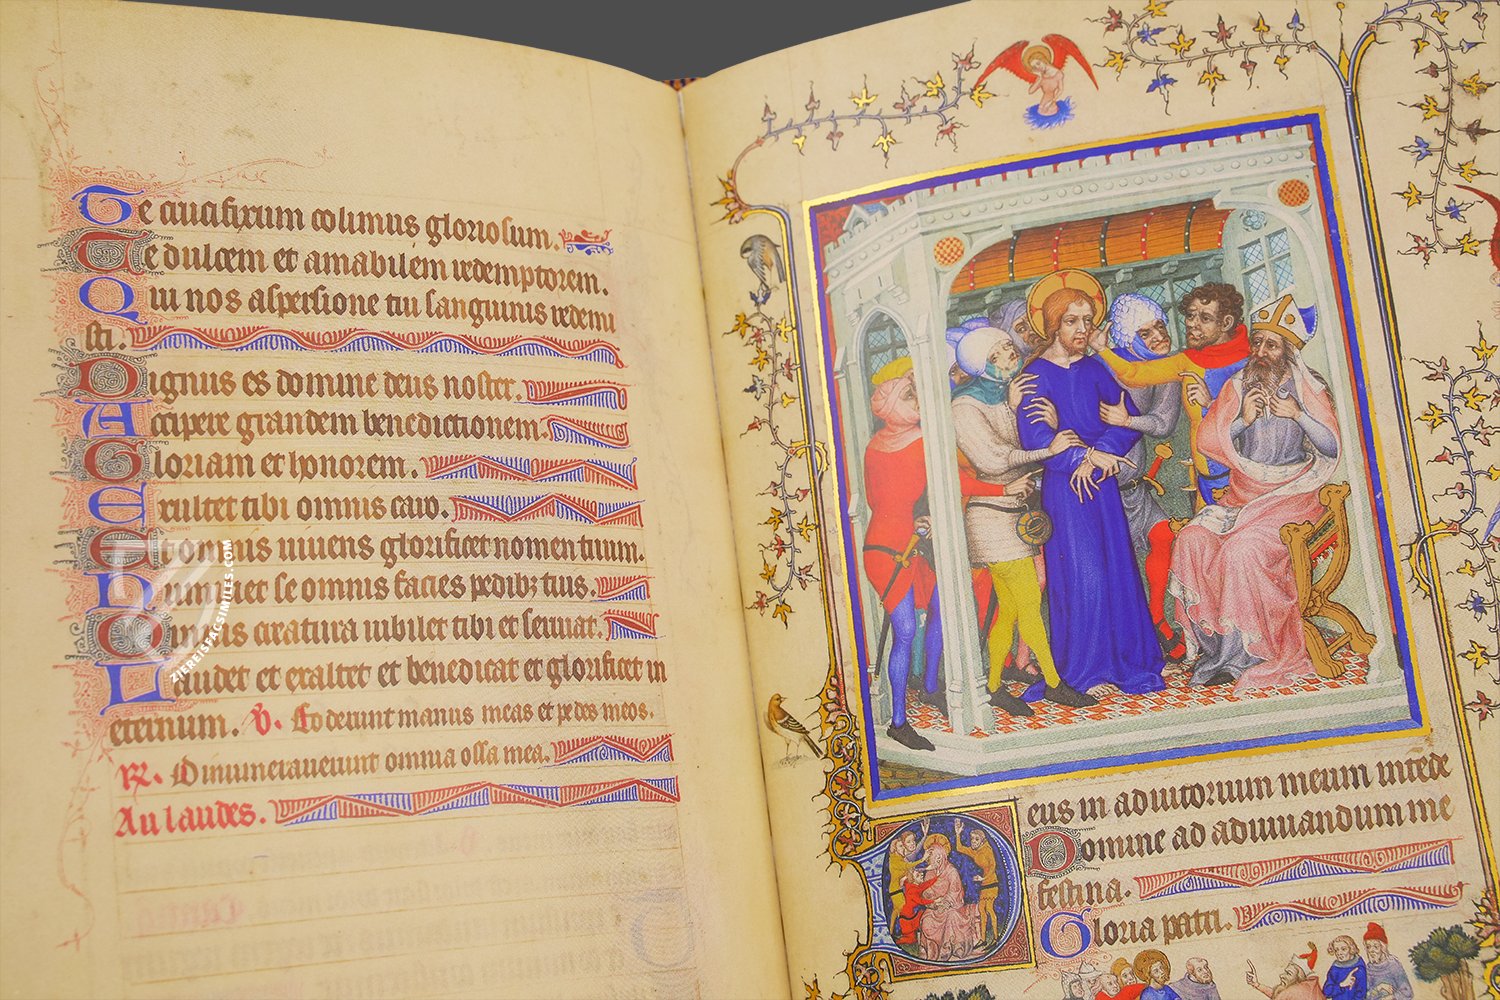 Te crucifixum colimus gloriosum.
Te dulcem et amabilem redemptorem.
Qui nos aspersione tui sanguinis redemi
sti.
Dignus es domine deus noster.
Accipere grandem benedictionem.
Gloriam et honorem.
Exultet tibi omnis caro.
Et omnis uiuens glorificet nomen tuum.
Humiliet se omnis facies pedibꝫ tuis.
Omnis creatura iubilet tibi et seruiat.
Laudet et exaltet et benedicat et glorificet in
eternum. V. Foderunt manus meas et pedes meos.
R. Dinumerauerunt omnia ossa mea.
Au laudes.
ZIEREISFACSIMILES.COM
Deus in adiutorium meum intēde
Domine ad adiuuandum me
festina.
Gloria patri.